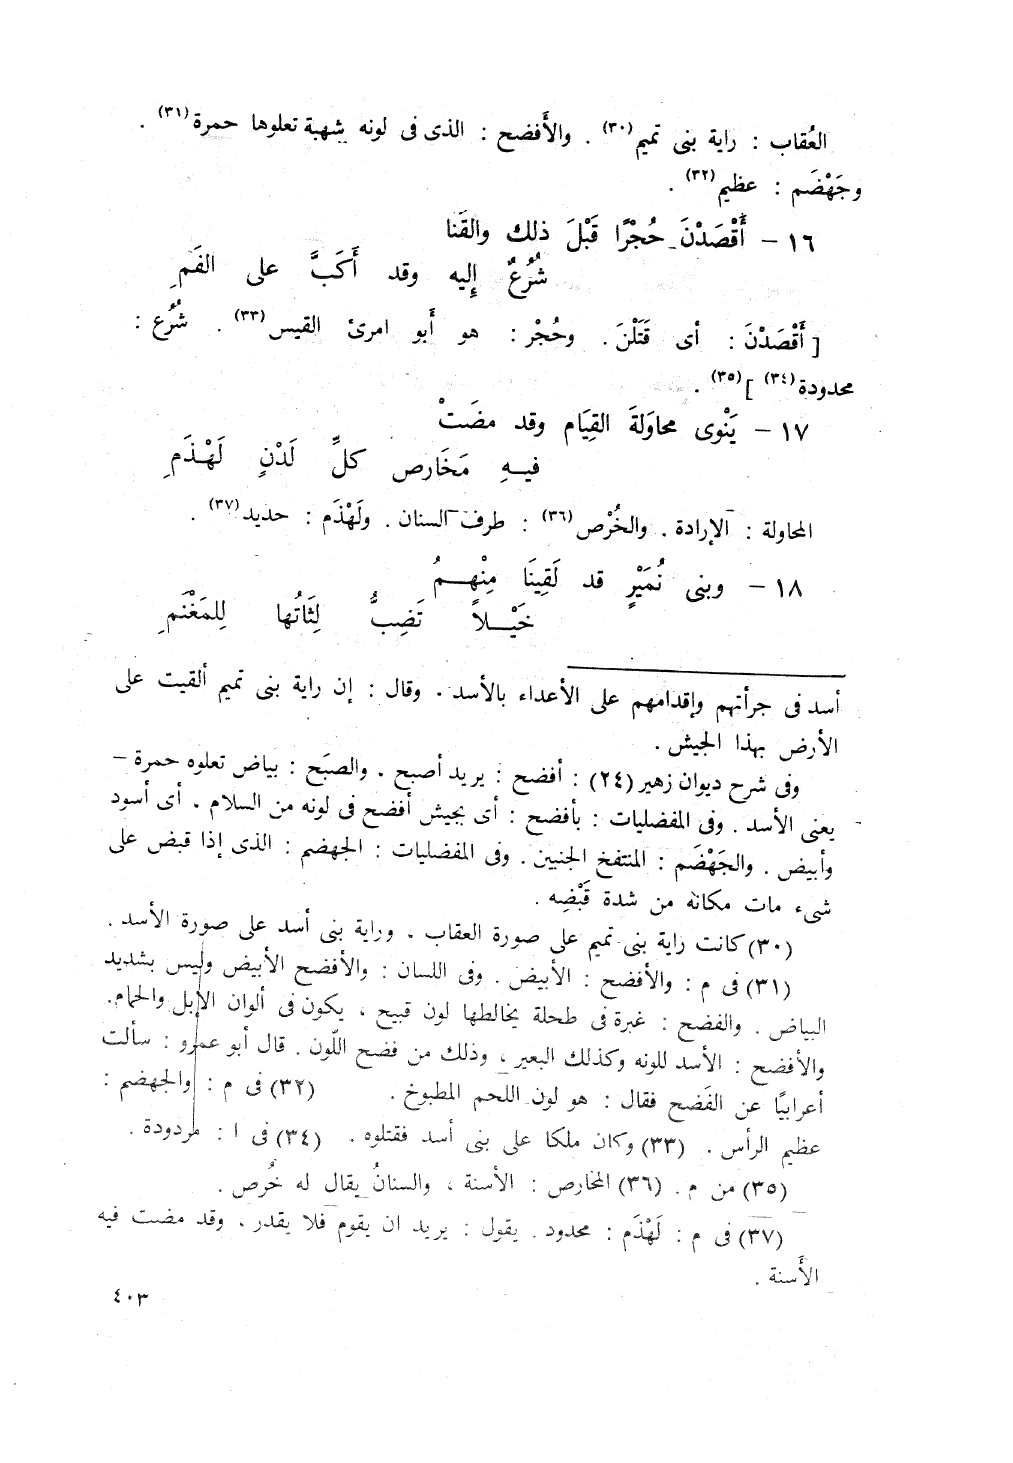 العُقاب : راية بنى تميم(٣٠) . والأَفضح : الذى فى لونه شهبة تعلوها حمرة(٣١) .
وجَهْضَم : عظيم(٣٢) .
١٦ – أَقْصَدْنَ حُجْرًا قَبْلَ ذلك والقَنا
شُرُعٌ إِليه وقد أَكَبَّ على الفَمِ
[ أَقْصَدْنَ : أى قَتَلْنَ . وحُجْر : هو أَبو امرئ القيس(٣٣) . شُرُع :
محدودة(٣٤) ](٣٥) .
١٧ – يَنْوِى محاوَلةَ القِيَام وقد مضَتْ
فيهِ مَخَارص كلِّ لَدْنٍ لَهْذَمِ
المحاولة : الإرادة . والخُرْص(٣٦) : طرف السنان . ولَهْذَم : حديد(٣٧) .
١٨ – وبنى نُمَيْرٍ قد لَقِينَا مِنْهمُ
خَيْلاً تَضِبُّ لِثَاتُها لِلمَغْنَمِ
أسد فى جرأتهم وإقدامهم على الأعداء بالأسد . وقال : إن راية بنى تميم ألقيت على
الأرض بهذا الجيش .
وفى شرح ديوان زهير (٢٤) : أفضح : يريد أصبح . والصبَح : بياض تعلوه حمرة –
يعنى الأسد . وفى المفضليات : بأفضح : أى بجيش أفضح فى لونه من السلام . أى أسود
وأبيض . والجَهْضَم : المنتفخ الجنبين . وفى المفضليات : الجهضم : الذى إذا قبض على
شىء مات مكانه من شدة قَبْضِه .
(٣٠) كانت راية بنى تميم على صورة العقاب . وراية بنى أسد على صورة الأسد .
(٣١) فى م : والأفضح : الأبيض . وفى اللسان : والأفضح الأبيض وليس بشديد
البياض . والفضح : غبرة فى طحلة يخالطها لون قبيح ، يكون فى ألوان الإبل والحمام.
والأفضح : الأسد للونه وكذلك البعير ، وذلك من فضح اللّون . قال أبو عمرو : سألت
أعرابيًا عن الفَضح فقال : هو لون اللحم المطبوخ . (٣٢) فى م : والجهضم :
عظيم الرأس . (٣٣) وكان ملكا على بنى أسد فقتلوه . (٣٤) فى ا : مردودة .
(٣٥) من م . (٣٦) المخارص : الأسنة ، والسنانُ يقال له خُرص .
(٣٧) فى م : لَهْذَم : محدود . يقول : يريد ان يقوم فلا يقدر ، وقد مضت فيه
الأَسنة .
٤٠٣